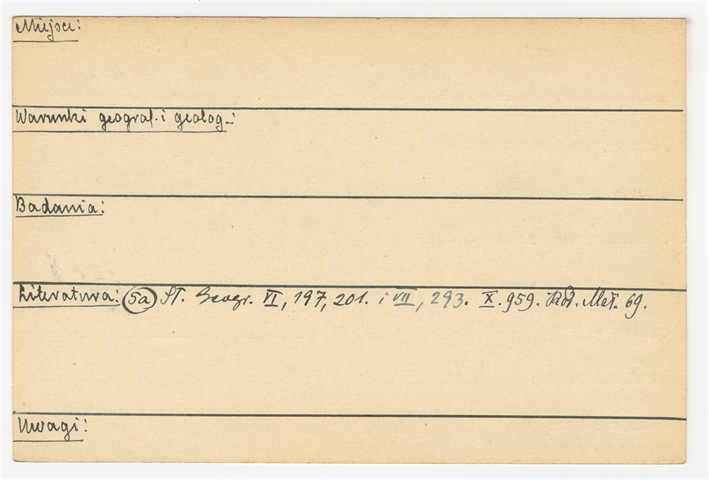 Miejsce:
Warunki geograf. i geolog.:
Badania:
Literatura: (5a) Sł. Geogr. VI, 197, 201. i VII, 293. X. 959. Mat. 69.
Uwagi: